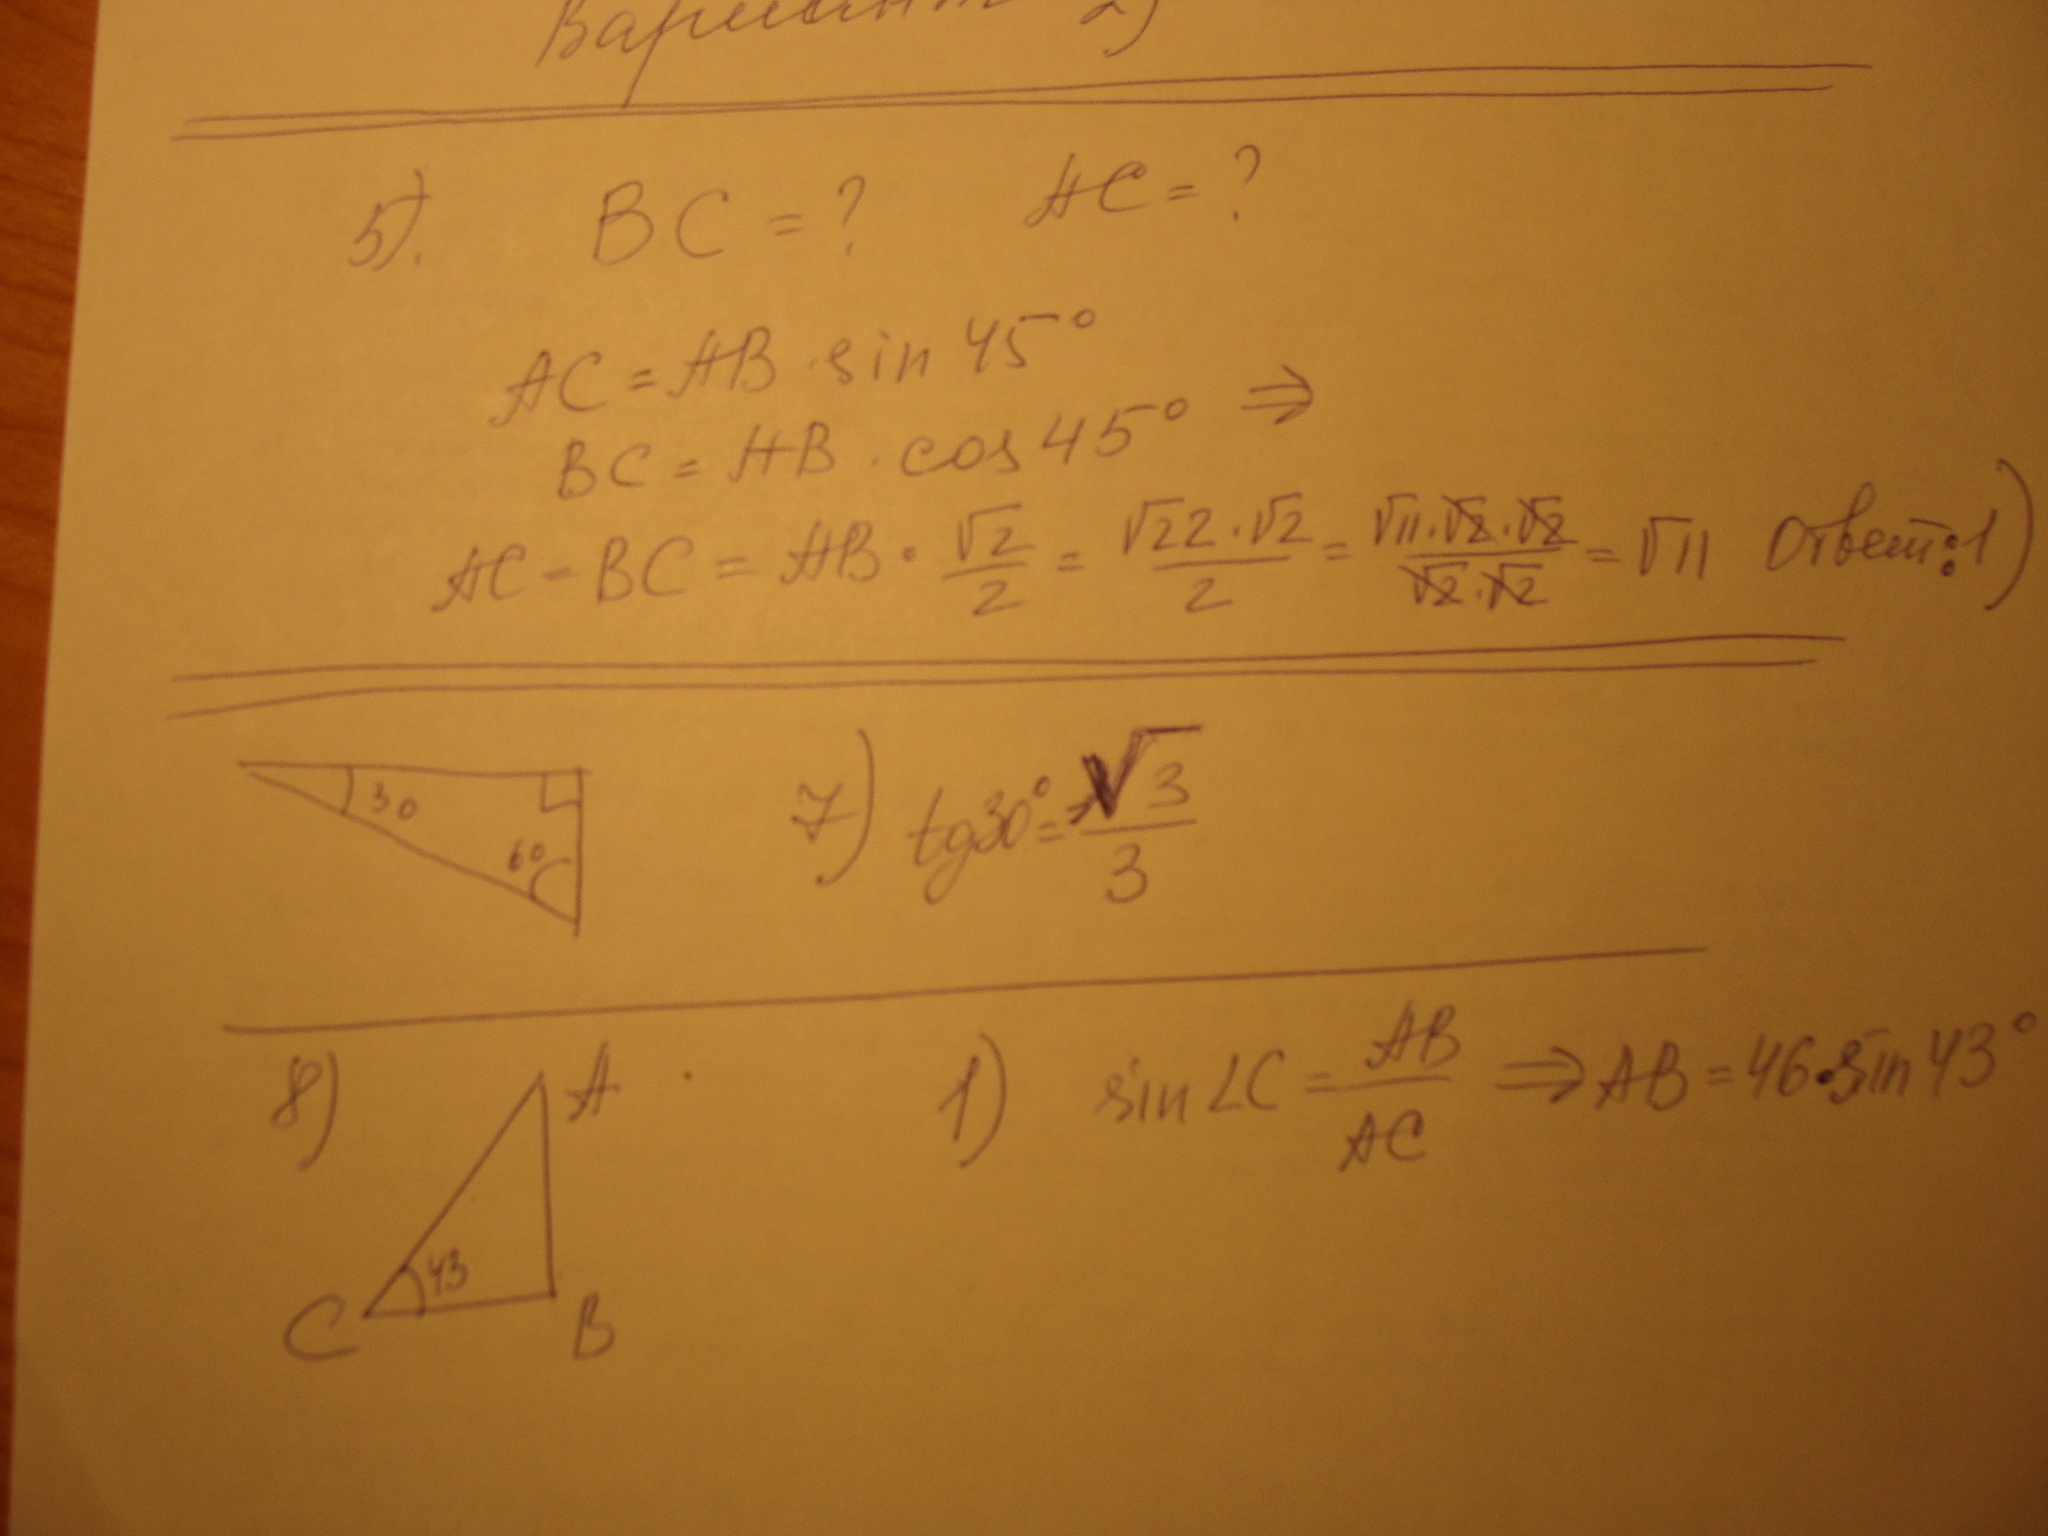 Вариант 2)
5). BC = ? AC = ?
AC = AB · sin 45°
BC = AB · cos 45° ⇒
AC = BC = AB · √2/2 = √22·√2/2 = √11·√2·√2/√2·√2 = √11 Ответ: 1)
30
60
7) tg30° = √3/3
8) A
43
C B
1) sin∠C = AB/AC ⇒ AB = 46·sin 43°